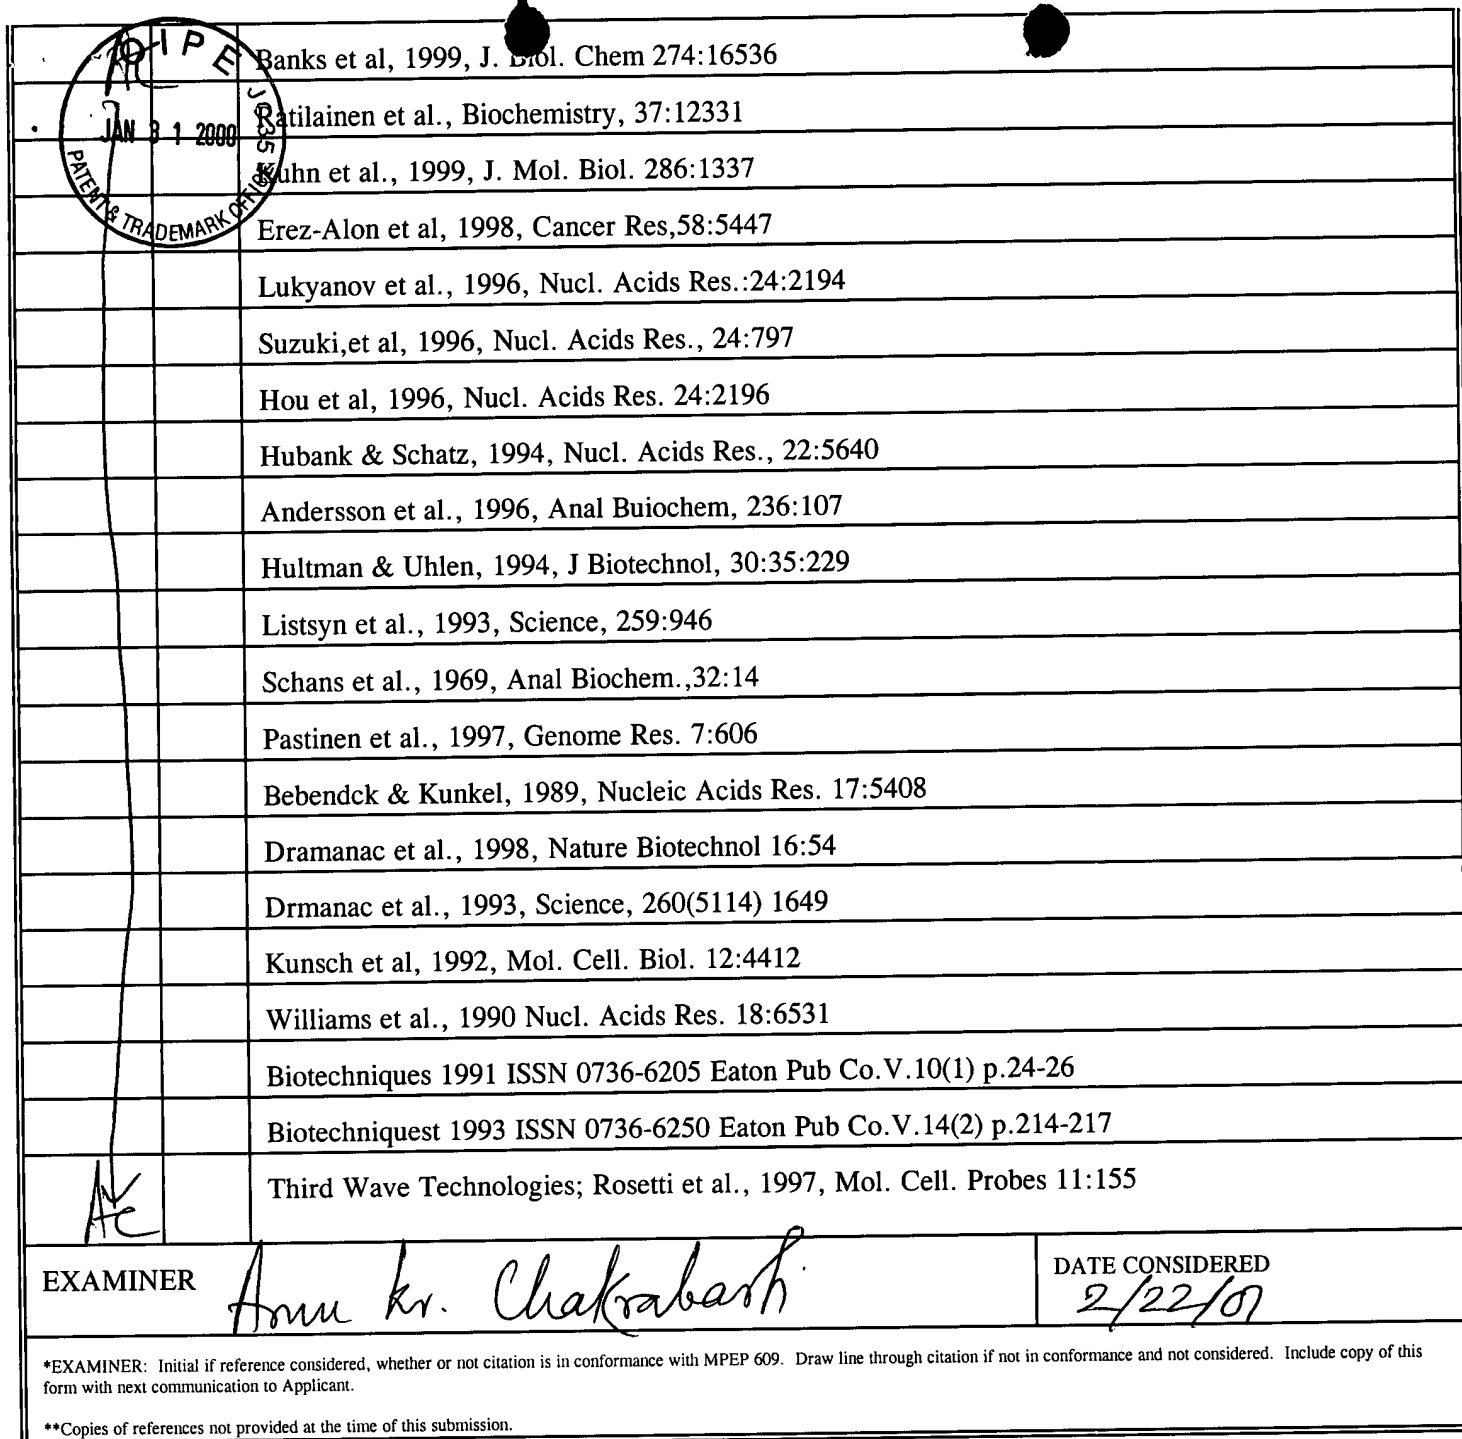 OIPE JC35
JAN 31 2000
PATENT & TRADEMARK OFFICE
Banks et al, 1999, J. Biol. Chem 274:16536
Ratilainen et al., Biochemistry, 37:12331
Kuhn et al., 1999, J. Mol. Biol. 286:1337
Erez-Alon et al, 1998, Cancer Res,58:5447
Lukyanov et al., 1996, Nucl. Acids Res.:24:2194
Suzuki,et al, 1996, Nucl. Acids Res., 24:797
Hou et al, 1996, Nucl. Acids Res. 24:2196
Hubank & Schatz, 1994, Nucl. Acids Res., 22:5640
Andersson et al., 1996, Anal Buiochem, 236:107
Hultman & Uhlen, 1994, J Biotechnol, 30:35:229
Listsyn et al., 1993, Science, 259:946
Schans et al., 1969, Anal Biochem.,32:14
Pastinen et al., 1997, Genome Res. 7:606
Bebendck & Kunkel, 1989, Nucleic Acids Res. 17:5408
Dramanac et al., 1998, Nature Biotechnol 16:54
Drmanac et al., 1993, Science, 260(5114) 1649
Kunsch et al, 1992, Mol. Cell. Biol. 12:4412
Williams et al., 1990 Nucl. Acids Res. 18:6531
Biotechniques 1991 ISSN 0736-6205 Eaton Pub Co.V.10(1) p.24-26
Biotechniquest 1993 ISSN 0736-6250 Eaton Pub Co.V.14(2) p.214-217
Third Wave Technologies; Rosetti et al., 1997, Mol. Cell. Probes 11:155
AC
EXAMINER Arun Kr. Chakrabarti
DATE CONSIDERED
2/22/01
*EXAMINER: Initial if reference considered, whether or not citation is in conformance with MPEP 609. Draw line through citation if not in conformance and not considered. Include copy of this
form with next communication to Applicant.
**Copies of references not provided at the time of this submission.